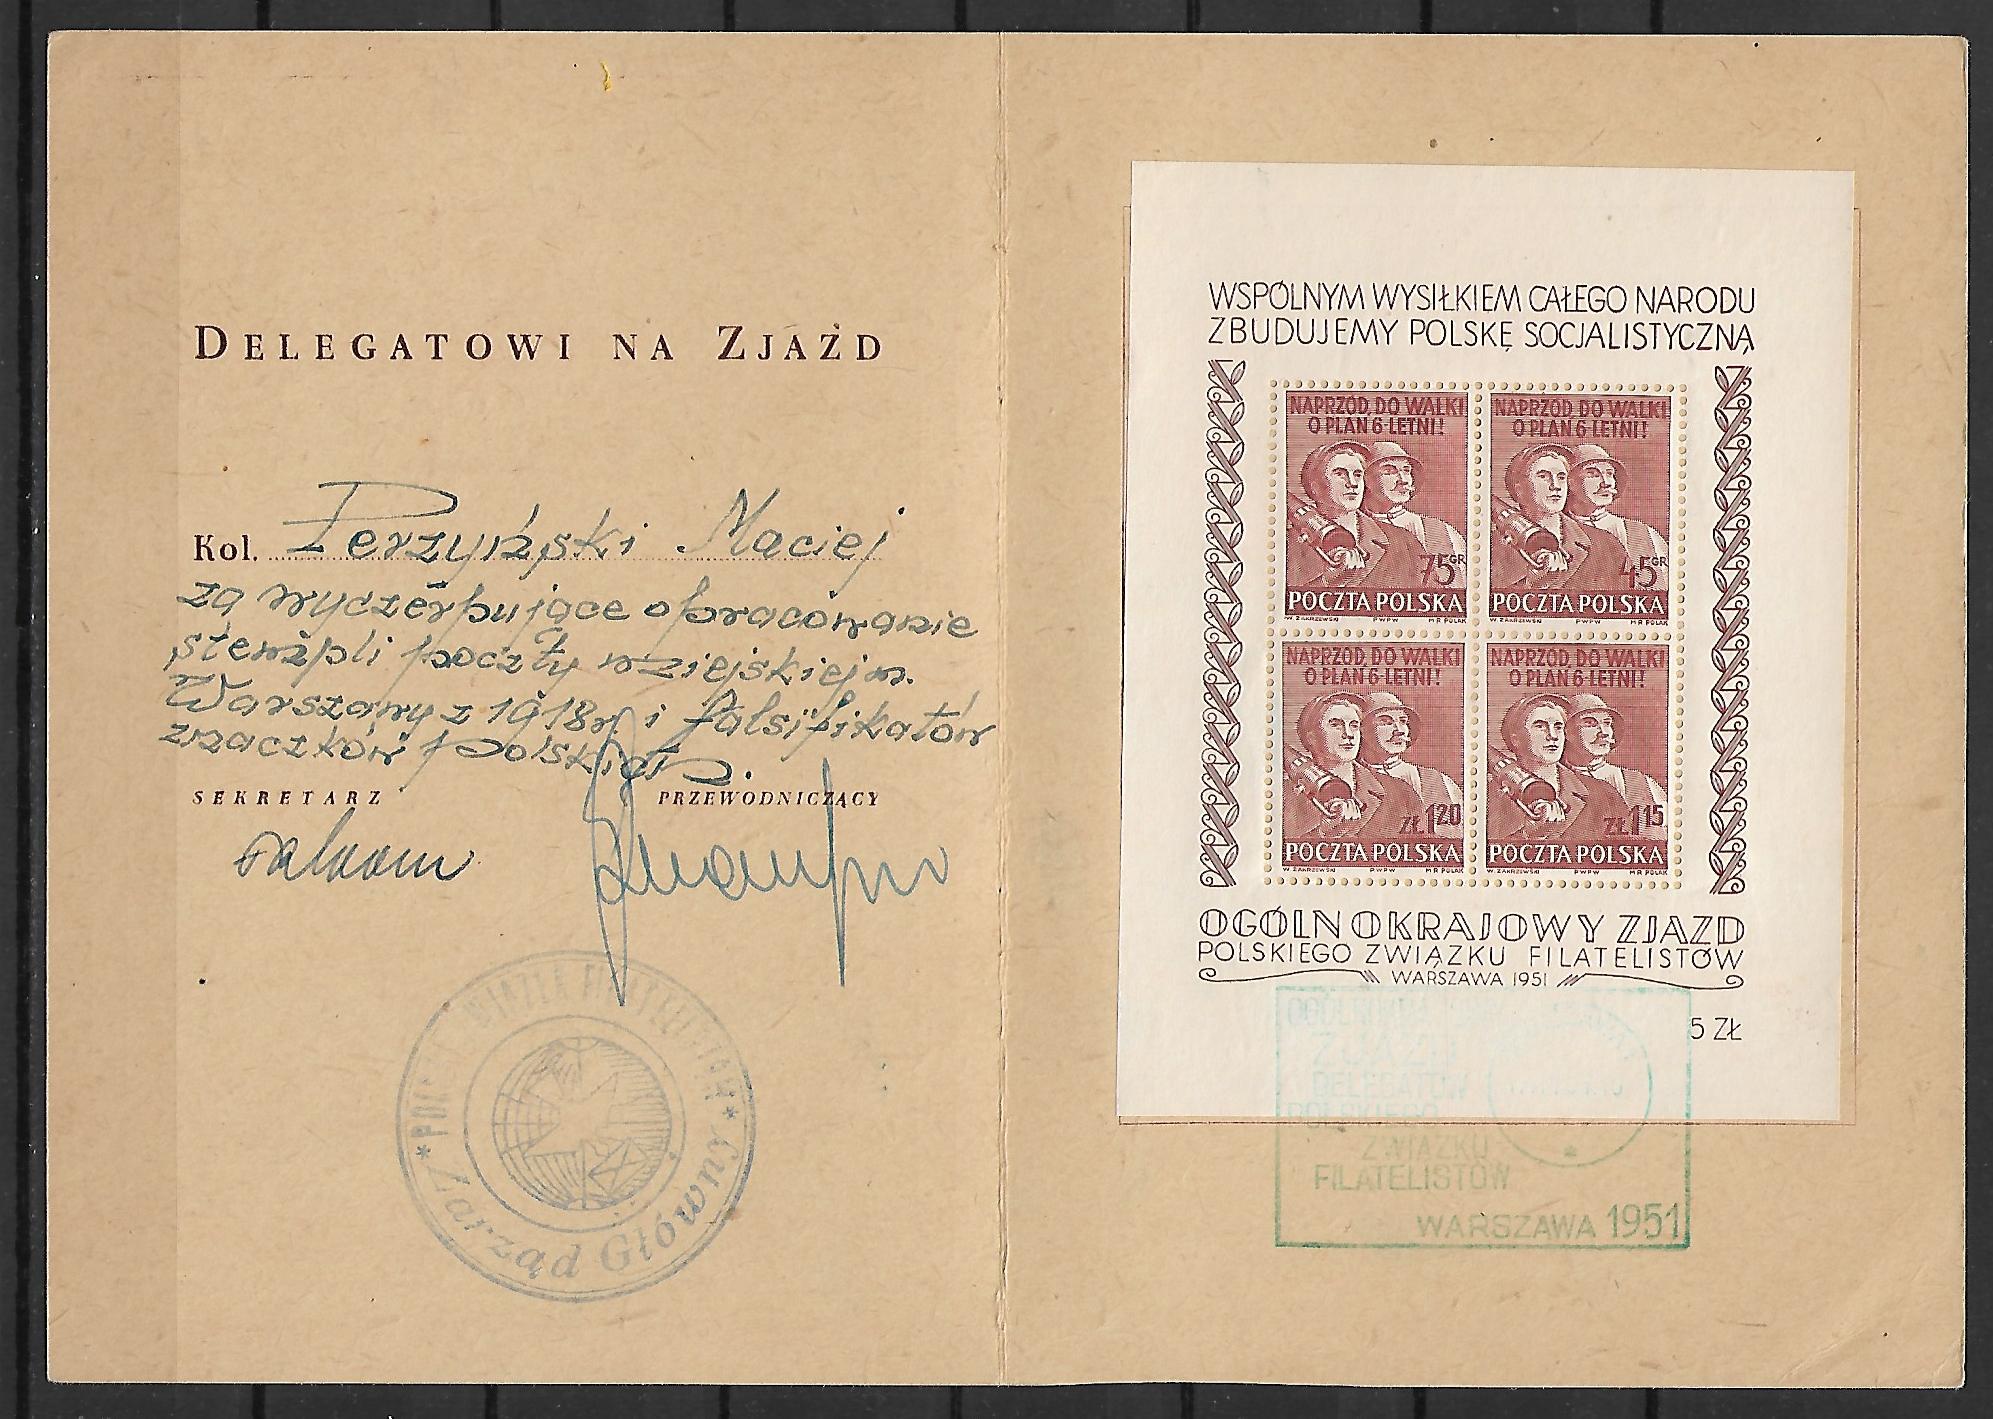 DELEGATOWI NA ZJAZD
Kol. Perzyński Maciej
za wyczerpujące opracowanie
stempli poczty miejskiej m.
Warszawy z 1918 r. i falsyfikatów
znaczków polskich.
SEKRETARZ
PRZEWODNICZĄCY
* POLSKI ZWIĄZEK FILATELISTÓW *
Zarząd Główny
WSPÓLNYM WYSIŁKIEM CAŁEGO NARODU
ZBUDUJEMY POLSKĘ SOCJALISTYCZNĄ
NAPRZÓD, DO WALKI
O PLAN 6-LETNI!
75 GR
POCZTA POLSKA
W. ZAKRZEWSKI PWPW M R POLAK
NAPRZÓD, DO WALKI
O PLAN 6-LETNI!
45 GR
POCZTA POLSKA
W. ZAKRZEWSKI PWPW M R POLAK
NAPRZÓD, DO WALKI
O PLAN 6-LETNI!
ZŁ 1 20
POCZTA POLSKA
W. ZAKRZEWSKI PWPW M R POLAK
NAPRZÓD, DO WALKI
O PLAN 6-LETNI!
ZŁ 1 15
POCZTA POLSKA
W. ZAKRZEWSKI PWPW M R POLAK
OGÓLNOKRAJOWY ZJAZD
POLSKIEGO ZWIĄZKU FILATELISTÓW
WARSZAWA 1951
5 ZŁ
ZJAZD
DELEGATÓW
POLSKIEGO
ZWIĄZKU
FILATELISTÓW
WARSZAWA 1951